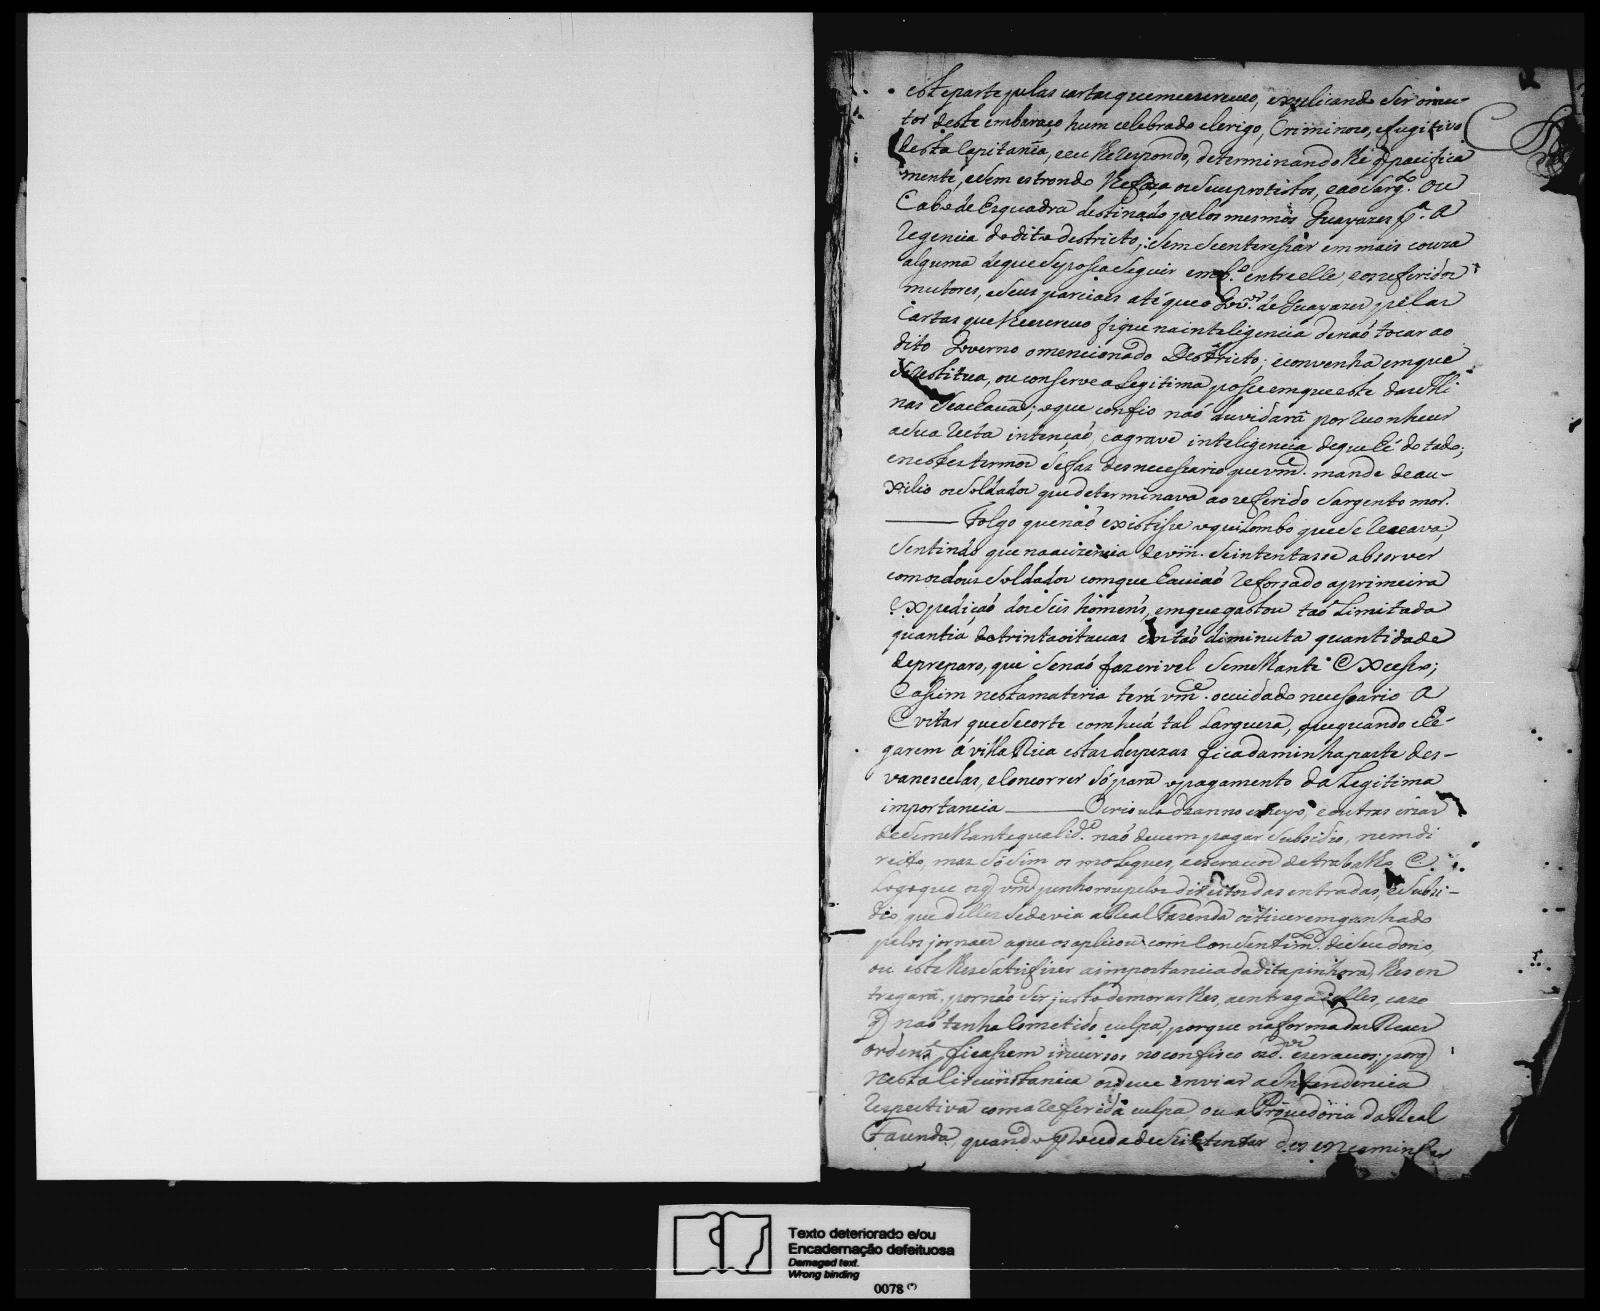 este parte pelas cartas que me escreveo, explicando ser o au-
tor deste embaraço hum celebrado clerigo, Criminozo, e fugitivo
desta Capitania, e eu lhe respondo, determinandolhe q̃ pacifica
mente, e sem estrondo lhe faça os seus protestos, e ao Sarg.to ou
Cabo de Esquadra destinado pelos mesmos Guayazes p.a a
regencia do dito destricto; sem se enteressar em mais couza
alguma de que se possa seguir entre elle, e os referidos
mutores, e seus parciaes até que o Gov.or de Guayazes pelas
Cartas que lhe escrevo fique na inteligencia de naõ tocar ao
dito Governo o mencionado Destricto; e convenha em que
se restitua, ou conserve a Legitima posse em que este das Mi
nas se achava; o que confio naõ duvidará por reconhecer
a sua recta intençaõ, e a grave inteligencia de que hé dotado;
e nestes termos se faz desnecessario que vm.ce mande de au-
xilio os Soldados que determinava ao referido Sargento mor.
Folgo que naõ existisse o quilombo que se receava,
sentindo que na auzencia de vm. se intentasse absorver
com os dous Soldados com que haviaõ reforsado a primeira
expediçaõ dos seis homens, em que gastou taõ Limitada
quantia de trinta oitavas em taõ diminuta quantidade
de preparo, que se naõ faz crivel semelhante excesso;
e assim nesta materia terá vm.ce o cuidado necessario a
evitar que se corte com huá tal Largueza, que quando che-
garem á villa Rica estas despezas fica da minha parte des-
vanescelas, e concorrer só para o pagamento da Legitima
importancia O crioulo de anno e meyo, e outras crias
de semelhante qualid.e naõ devem pagar subsidio, nem di
reito, mas só sim os moleques, e escravos de trabalho. E
Logo que os q̃ vm.ce penhorou pelos direitos das entradas, e Subsi-
dio que delles se devia a Real Fazenda os tiverem ganhado
pelos jornaes a que os aplicou com consentim.to de seu dono,
ou este lhes satisfizer a importancia da dita pinhora, lhes en
tregará, por naõ ser justo demorarlhes, a entrega delles, cazo
q̃ naõ tenha cometido culpa, porque na forma das Reaes
ordens ficassem incursos no confisco os d.os escravos; porq̃
nesta circunstancia os deve enviar a entendencia
respectiva com a referida culpa ou a Provedoria da Real
Fazenda, quando proceda de se intentar desencaminhar
Texto deteriorado e/ou
Encadernação defeituosa
Damaged text.
Wrong binding
0078 (*)